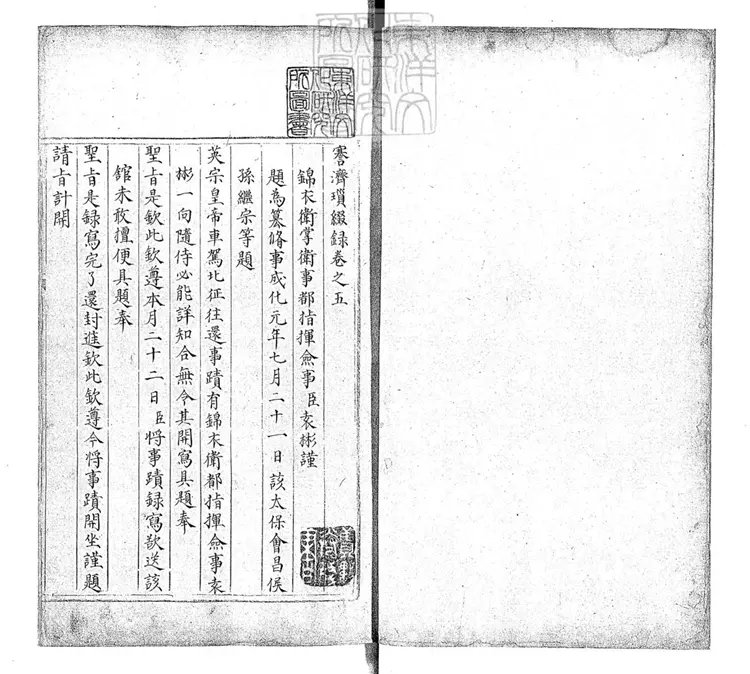 謇濟瑣綴録卷之五
錦衣衛掌衛事都指揮僉事臣袁彬謹
題爲纂脩事成化元年七月二十一日該太保會昌侯
孫繼宗等題
英宗皇帝車駕北征往還事蹟有錦衣衛都指揮僉事袁
彬一向隨侍必能詳知合無令其開寫具題奉
聖旨是欽此欽遵本月二十二日臣將事蹟録寫欲送該
館未敢擅便具題奉
聖旨是録寫完了還封進欽此欽遵今將事蹟開坐謹題
請旨計開
東洋文
化研究
所圖書